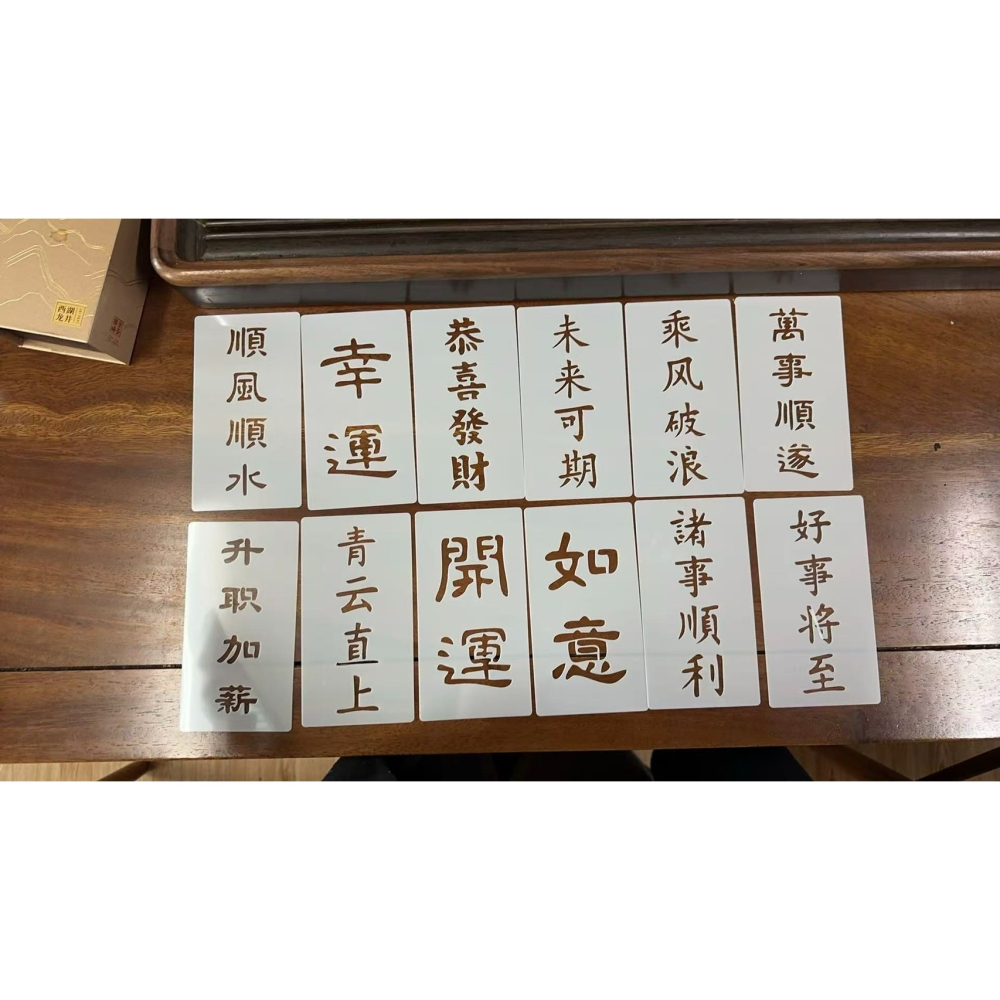 西湖
龙井
順風順水
幸運
恭喜發財
未来可期
乘风破浪
萬事順遂
升职加薪
青云直上
開運
如意
諸事順利
好事将至